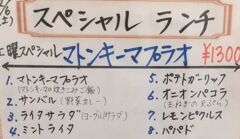 2/6
(土)
スペシャル ランチ
土曜スペシャル マトンキーマプラオ ¥1300
1. マトンキーマプラオ
(マトンキーマの炊きこみご飯)
2. サンバル (野菜カレー)
3. ライタサラダ (ヨーグルトサラダ)
4. ミントライタ
5. ポテトガーリック
6. オニオンパコラ
(玉ねぎの天ぷら)
7. レモンピクルス
8. パパド